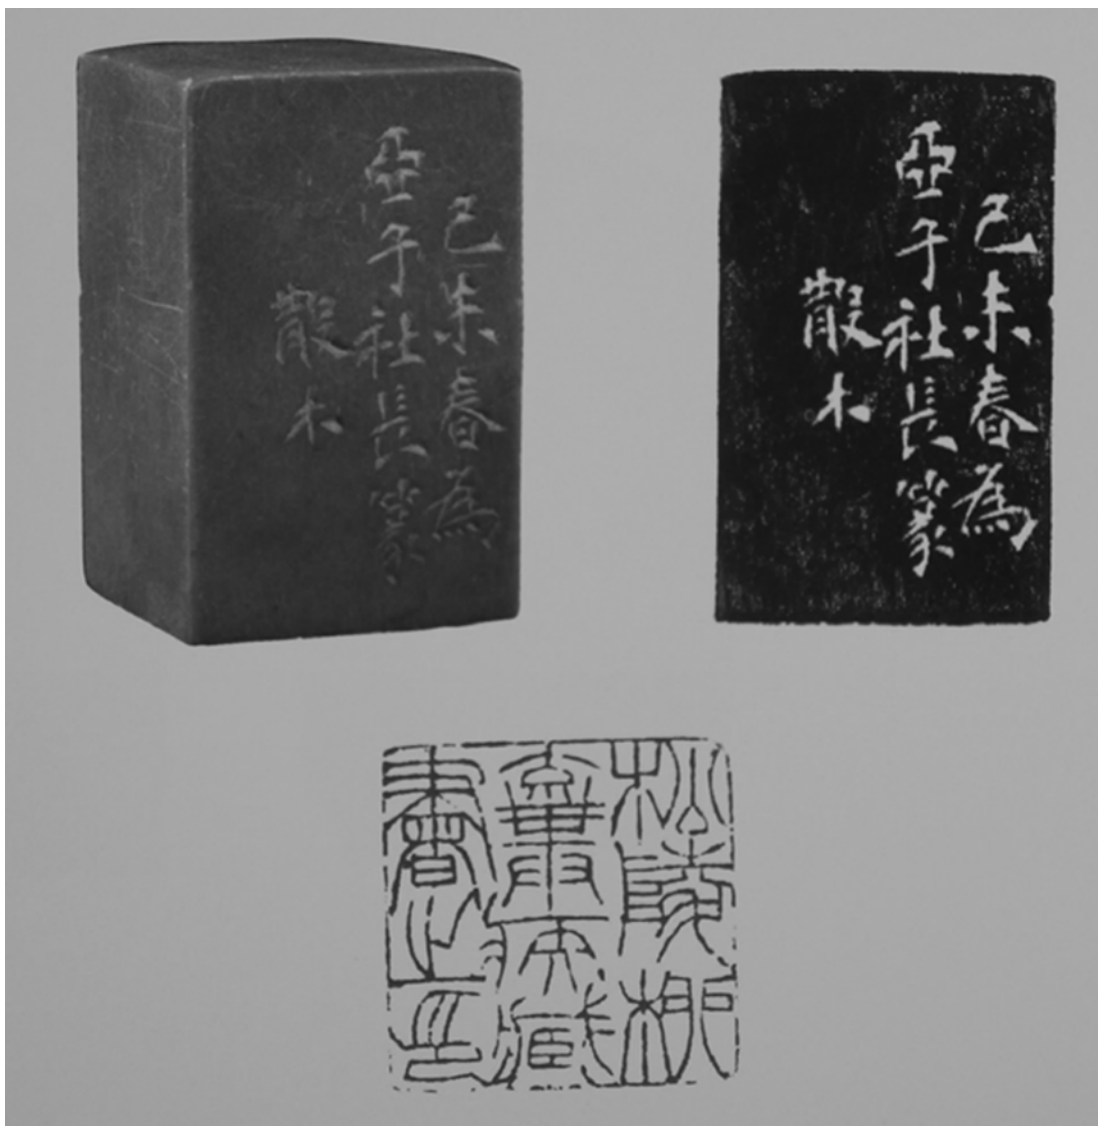 己未春為
亞子社長篆
散木
己未春為
亞子社長篆
散木
松陵柳
棄疾藏
書之印